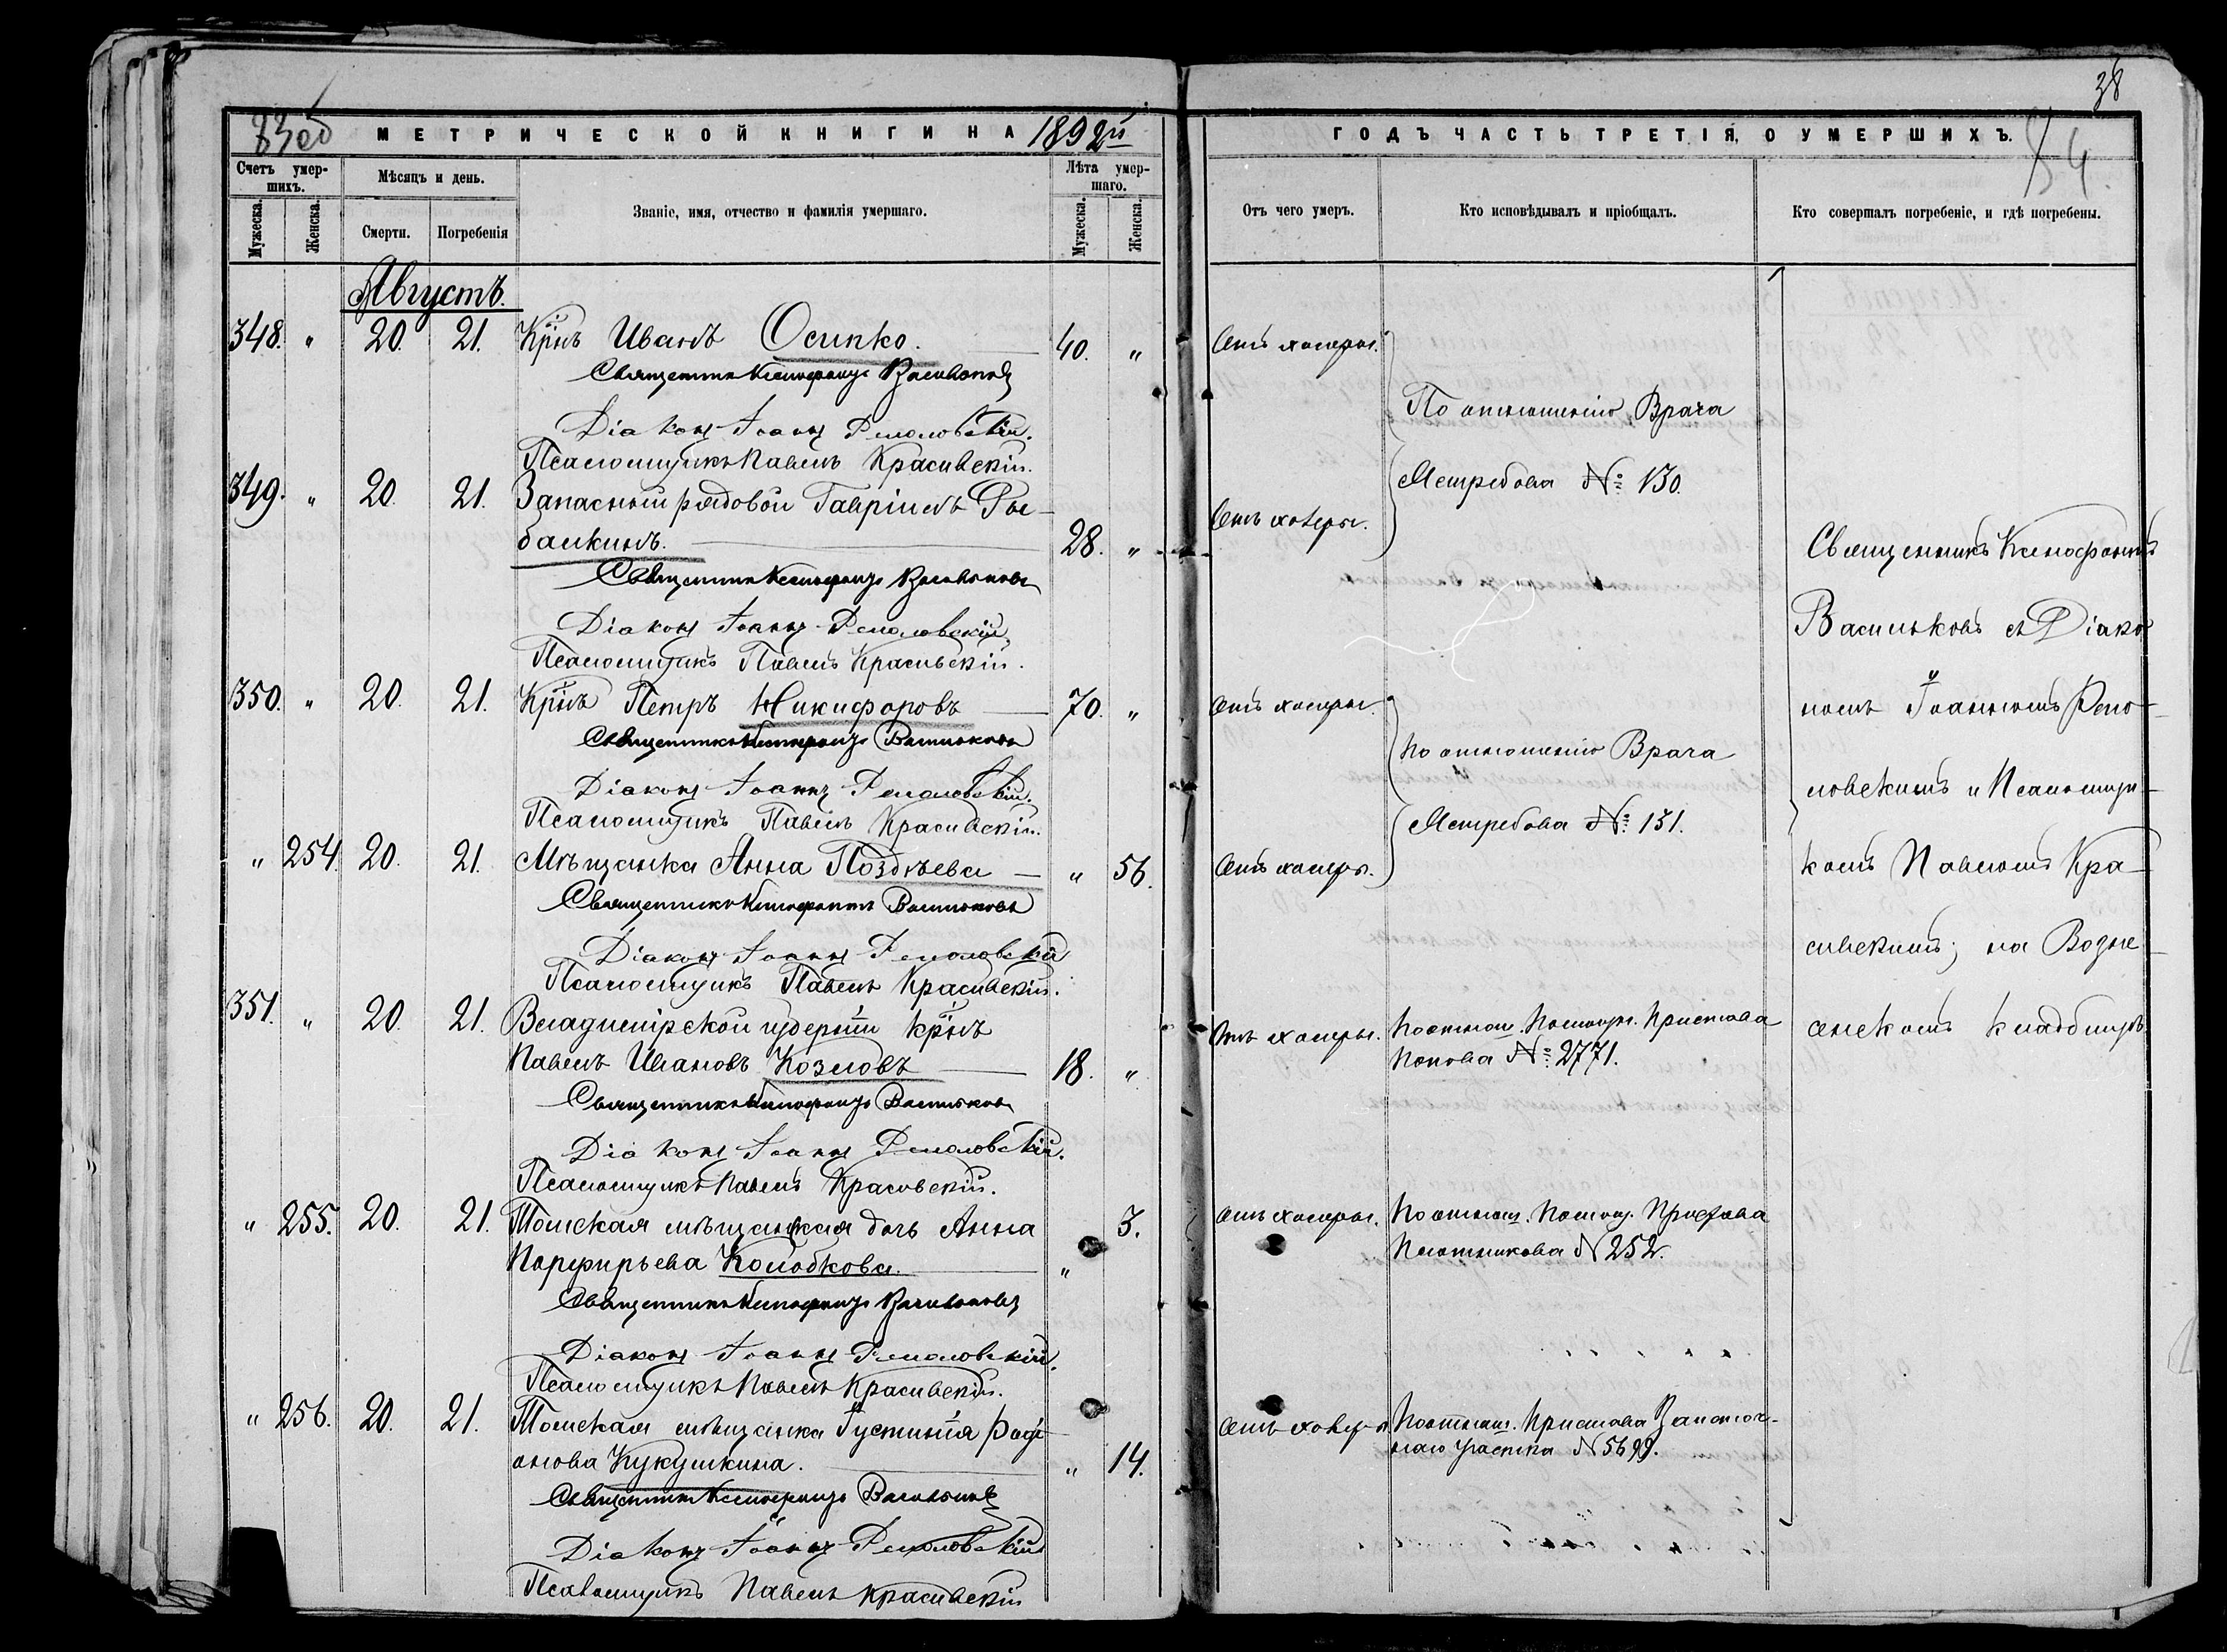 38
83об
МЕТРИЧЕСКОЙ КНИГИ НА 1892й
ГОДЪ ЧАСТЬ ТРЕТІЯ, О УМЕРШИХЪ.
84.
Счетъ умер-
шихъ.
Мужеска.
Женска.
Мѣсяцъ и день.
Смерти.
Погребенія
Званіе, имя, отчество и фамилія умершаго.
Лѣта умер-
шаго.
Мужеска.
Женска.
Отъ чего умеръ.
Кто исповѣдывалъ и пріобщалъ.
Кто совершалъ погребеніе, и гдѣ погребены.
Августъ.
348. " 20. 21. Крнъ Иванъ Осипко. 40. " Отъ холеры.
Священникъ Ксенофонтъ Васильковъ
По отношенію Врача
Діаконъ Іоаннъ
Псаломщикъ Павелъ Красивскій.
Ястребова №: 130.
349. " 20. 21. Запасный рядовой Гавріилъ Ры-
балкинъ. 28. " Отъ холеры.
Священникъ Ксенофонтъ Васильковъ
Діаконъ Іоаннъ
Псаломщикъ Павелъ Красивскій.
350. " 20. 21. Крнъ Петръ Никифоровъ 70. " Отъ холеры.
Священникъ Ксенофонтъ Васильковъ
По отношенію Врача
Діаконъ Іоаннъ
Псаломщикъ Павелъ Красивскій.
Ястребова №: 131.
" 254. 20. 21. Мѣщанка Анна Позднѣева " 56. Отъ холеры.
Священникъ Ксенофонтъ Васильковъ
Діаконъ Іоаннъ
Псаломщикъ Павелъ Красивскій.
351. " 20. 21. Владимірской губерніи крнъ
Павелъ Ивановъ Козловъ 18. " Отъ холеры.
По отнош. Помощн. Пристава
Попова №: 2771.
Священникъ Ксенофонтъ Васильковъ
Діаконъ Іоаннъ
Псаломщикъ Павелъ Красивскій.
" 255. 20. 21. Томская мѣщанская дочь Анна
Порфирьева Колобкова. " 3. Отъ холеры.
По отнош. Помощ. Пристава
Плотникова N 252.
Священникъ Ксенофонтъ Васильковъ
Діаконъ Іоаннъ
Псаломщикъ Павелъ Красивскій.
" 256. 20. 21. Томская мѣщанка Іустинія Роді-
онова Кукушкина. " 14. Отъ холеры
По отнош. Пристава
наго участка N 5699.
Священникъ Ксенофонтъ Васильковъ
Діаконъ Іоаннъ
Псаломщикъ Павелъ Красивскій
Священникъ Ксенофонтъ
Васильковъ съ Діако-
номъ Іоанномъ
и Псаломщи-
комъ Павломъ Кра-
сивскимъ; на Возне-
сенскомъ кладбищѣ.